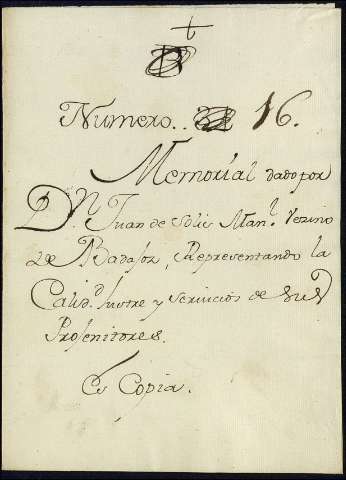 Numero.. 16.
Memorial dado por
Dn. Juan de Solis Manl. Vezino
de Badajoz, Representando la
Calidd. lustre y Servicios de sus
Projenitores.
Es Copia.